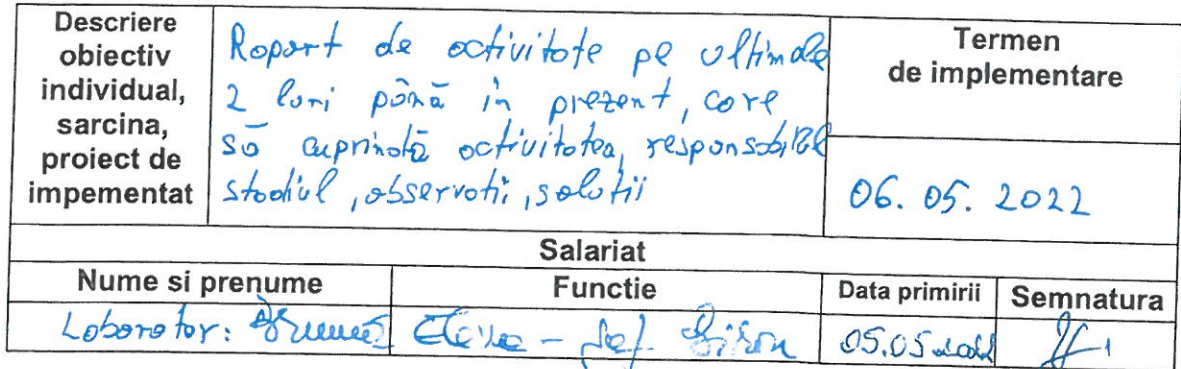 Descriere obiectiv individual, sarcina, proiect de impementat
Raport de activitate pe ultimele
2 luni până în prezent, care
să cuprindă activitatea, responsabilii
stadiul, observatii, solutii
Termen
de implementare
06. 05. 2022
Salariat
Nume si prenume
Functie
Data primirii
Semnatura
Laborator:
Elena - Șef. Birou
05.05.2022